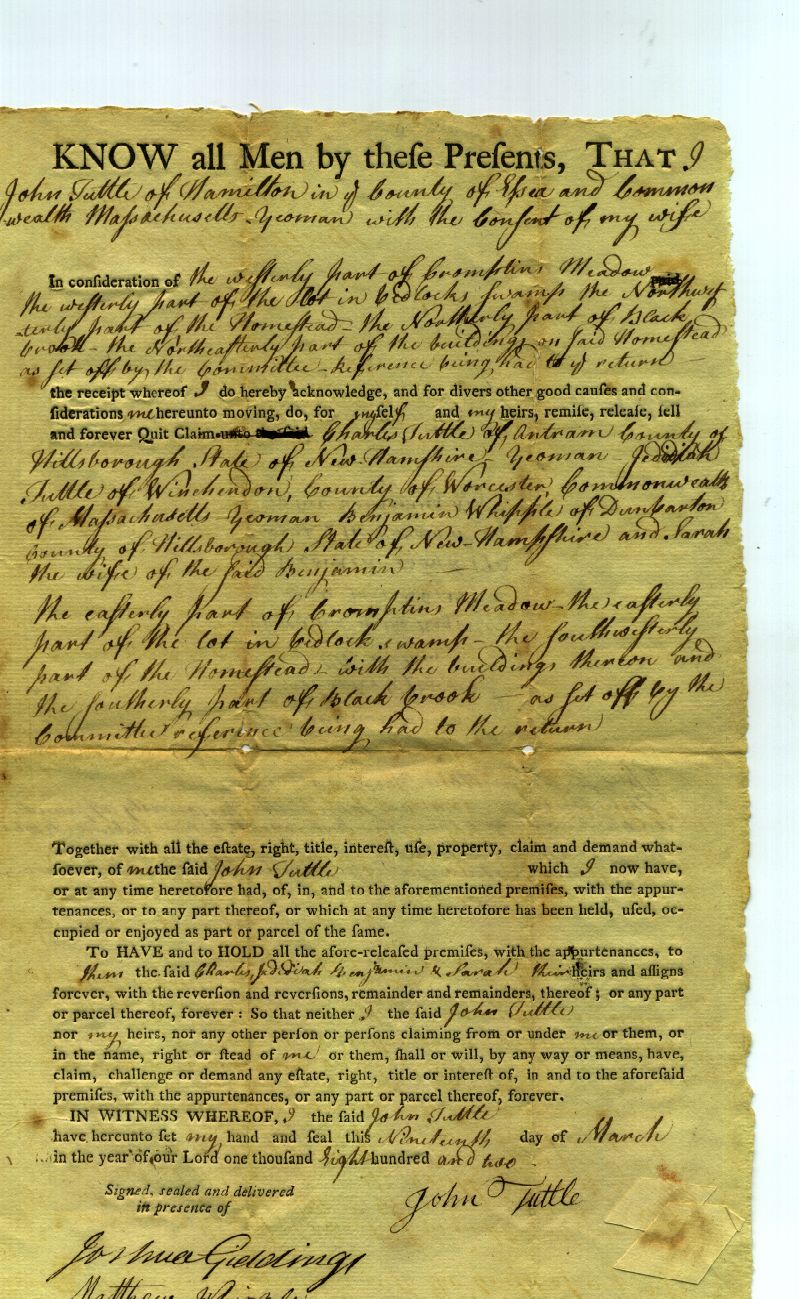 KNOW all Men by theſe Preſents, THAT I
John Tuttle of Hamilton in ye County of Eſsex and Common
-wealth Maſsachusetts Yeoman with the Conſent of my wife
In conſideration of the weſterly part of Cromptins Meadow
the weſterly part of the lot in Wedlocks swamp the Northweſ
-terly part of the Homestead - the Northerly part of Black
brook - the Northeaſterly part of the buildings on ſaid Homestead
as ſet off by the Committee - Reference being had to ye return
the receipt whereof I do hereby acknowledge, and for divers other good cauſes and con-
ſiderations me hereunto moving, do, for myſelf and my heirs, remiſe, releaſe, ſell
and forever Quit Claim unto the ſaid Charles Tuttle of Antram County of
Hillsborough State of New-Hampſhire, Yeoman - Jedidiah
Tuttle of Winchendon, County of Worcester, Commonwealth
of Maſsachusetts Yeoman Benjamin Whipple of Dunbarton
County of Hillsborough State of New-Hampſhire and Sarah
the wife of the ſaid Benjamin
the eaſterly part of Cromptins Meadow - the eaſterly
part of the lot in Wedlock swamp - the ſouthweſterly
part of the Homestead - with the buildings thereon and
the ſoutherly part of Black brook - as ſet off by the
Committee reference being had to the return
Together with all the eſtate, right, title, intereſt, uſe, property, claim and demand what-
ſoever, of me the ſaid John Tuttle which I now have,
or at any time heretofore had, of, in, and to the aforementioned premiſes, with the appur-
tenances, or to any part thereof, or which at any time heretofore has been held, uſed, oc-
cupied or enjoyed as part or parcel of the ſame.
To HAVE and to HOLD all the afore-releaſed premiſes, with the appurtenances, to
them the ſaid Charles, Jedidiah Benjamin & Sarah their heirs and aſſigns
forever, with the reverſion and reverſions, remainder and remainders, thereof; or any part
or parcel thereof, forever: So that neither I the ſaid John Tuttle
nor my heirs, nor any other perſon or perſons claiming from or under me or them, or
in the name, right or ſtead of me or them, ſhall or will, by any way or means, have,
claim, challenge or demand any eſtate, right, title or intereſt of, in and to the aforeſaid
premiſes, with the appurtenances, or any part or parcel thereof, forever.
IN WITNESS WHEREOF, I the ſaid John Tuttle
have hereunto ſet my hand and ſeal this Nineteenth day of March
in the year of our Lord one thouſand Eight hundred and two
Signed, sealed and delivered
in presence of
John Tuttle
Joshua Giddings
Matthew Whipple